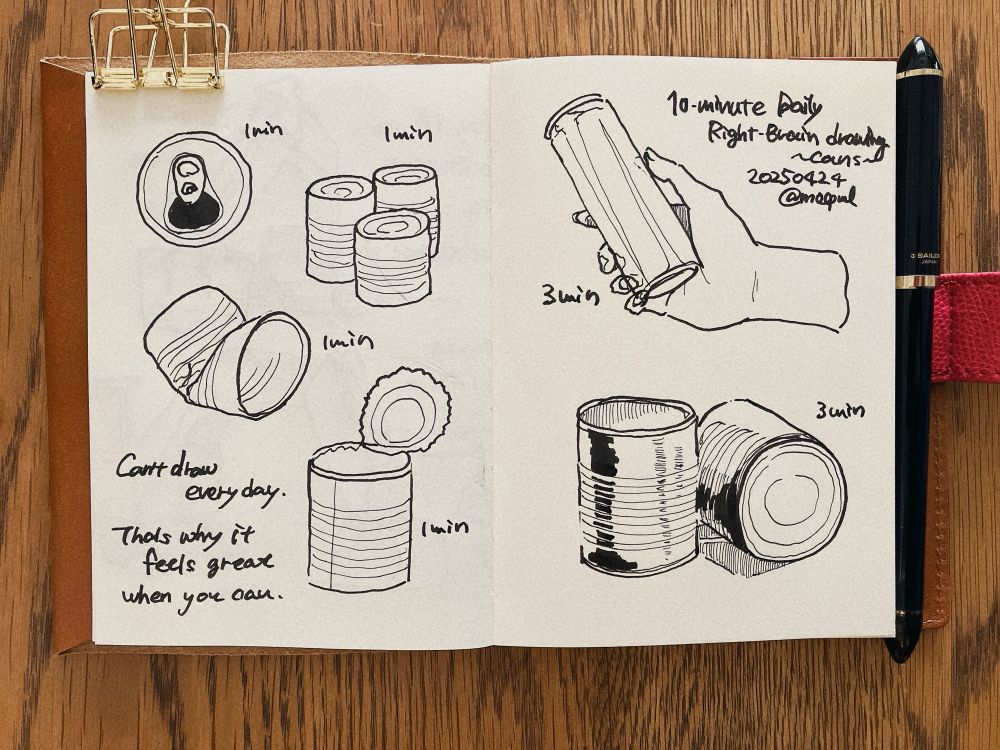 1min
1min
1min
Can't draw
everyday.
Thats why it
feels great
when you can.
1min
10-minute Daily
Right-Brain drawing
~Cans~
20250424
3min
3min
SAILOR
JAPAN